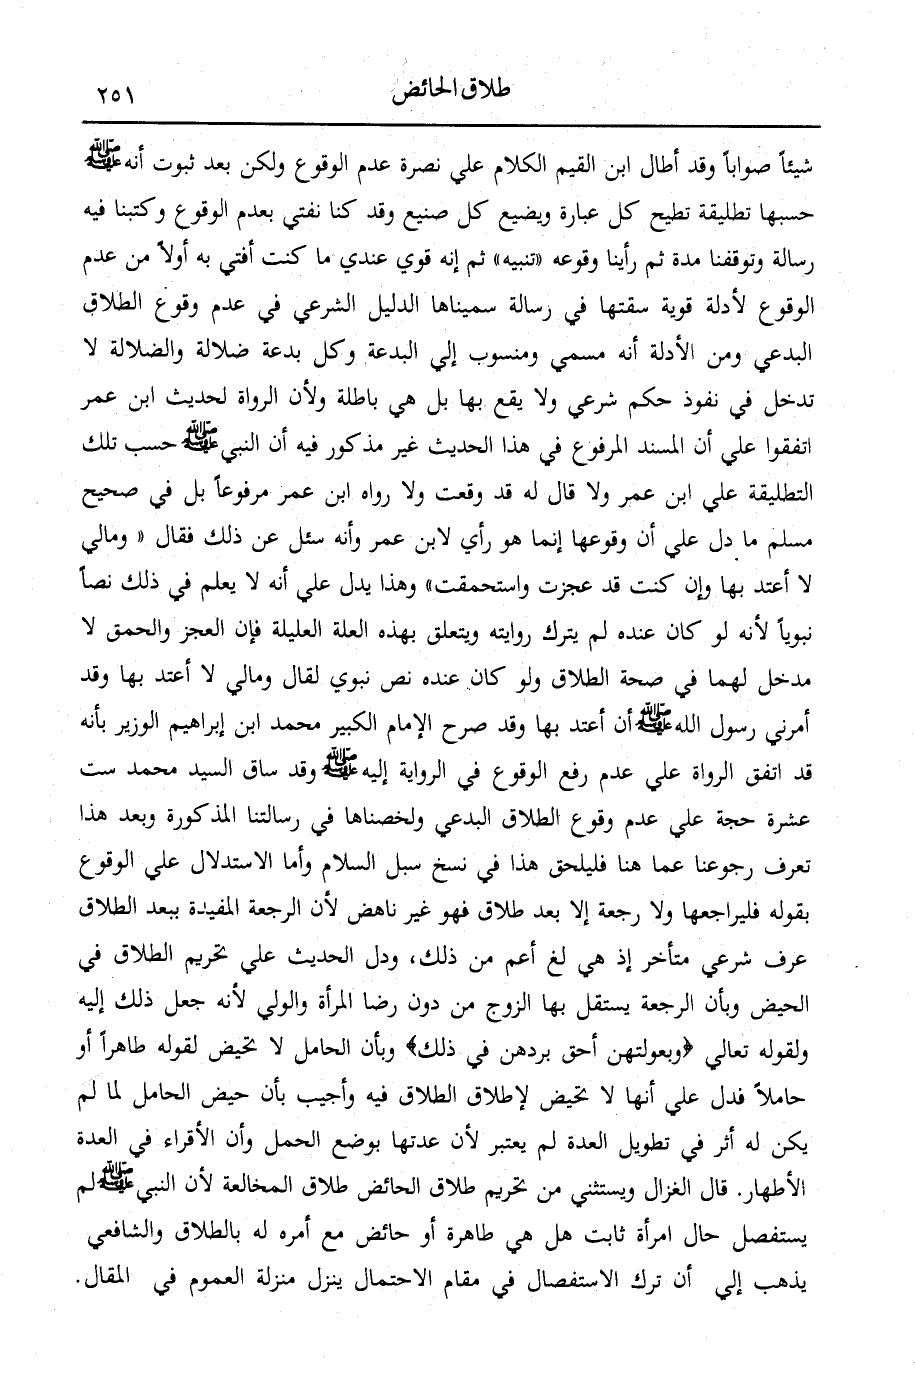 طلاق الحائض
٢٥١
شيئاً صواباً وقد أطال ابن القيم الكلام علي نصرة عدم الوقوع ولكن بعد ثبوت أنه ﷺ
حسبها تطليقة تطيح كل عبارة ويضيع كل صنيع وقد كنا نفتي بعدم الوقوع وكتبنا فيه
رسالة وتوقفنا مدة ثم رأينا وقوعه «تنبيه» ثم إنه قوي عندي ما كنت أفتي به أولاً من عدم
الوقوع لأدلة قوية سقتها في رسالة سميناها الدليل الشرعي في عدم وقوع الطلاق
البدعي ومن الأدلة أنه مسمي ومنسوب إلي البدعة وكل بدعة ضلالة والضلالة لا
تدخل في نفوذ حكم شرعي ولا يقع بها بل هي باطلة ولأن الرواة لحديث ابن عمر
اتفقوا علي أن المسند المرفوع في هذا الحديث غير مذكور فيه أن النبي ﷺ حسب تلك
التطليقة علي ابن عمر ولا قال له قد وقعت ولا رواه ابن عمر مرفوعاً بل في صحيح
مسلم ما دل علي أن وقوعها إنما هو رأي لابن عمر وأنه سئل عن ذلك فقال « ومالي
لا أعتد بها وإن كنت قد عجزت واستحمقت» وهذا يدل علي أنه لا يعلم في ذلك نصاً
نبوياً لأنه لو كان عنده لم يترك روايته ويتعلق بهذه العلة العليلة فإن العجز والحمق لا
مدخل لهما في صحة الطلاق ولو كان عنده نص نبوي لقال ومالي لا أعتد بها وقد
أمرني رسول الله ﷺ أن أعتد بها وقد صرح الإمام الكبير محمد ابن إبراهيم الوزير بأنه
قد اتفق الرواة علي عدم رفع الوقوع في الرواية إليه ﷺ وقد ساق السيد محمد ست
عشرة حجة علي عدم وقوع الطلاق البدعي ولخصناها في رسالتنا المذكورة وبعد هذا
تعرف رجوعنا عما هنا فليلحق هذا في نسخ سبل السلام وأما الاستدلال علي الوقوع
بقوله فليراجعها ولا رجعة إلا بعد طلاق فهو غير ناهض لأن الرجعة المفيدة ببعد الطلاق
عرف شرعي متأخر إذ هي لغ أعم من ذلك، ودل الحديث علي تحريم الطلاق في
الحيض وبأن الرجعة يستقل بها الزوج من دون رضا المرأة والولي لأنه جعل ذلك إليه
ولقوله تعالي ﴿وبعولتهن أحق بردهن في ذلك﴾ وبأن الحامل لا تحيض لقوله طاهراً أو
حاملاً فدل علي أنها لا تحيض لإطلاق الطلاق فيه وأجيب بأن حيض الحامل لما لم
يكن له أثر في تطويل العدة لم يعتبر لأن عدتها بوضع الحمل وأن الأقراء في العدة
الأطهار. قال الغزال ويستثني من تحريم طلاق الحائض طلاق المخالعة لأن النبي ﷺ لم
يستفصل حال امرأة ثابت هل هي طاهرة أو حائض مع أمره له بالطلاق والشافعي
يذهب إلي أن ترك الاستفصال في مقام الاحتمال ينزل منزلة العموم في المقال.